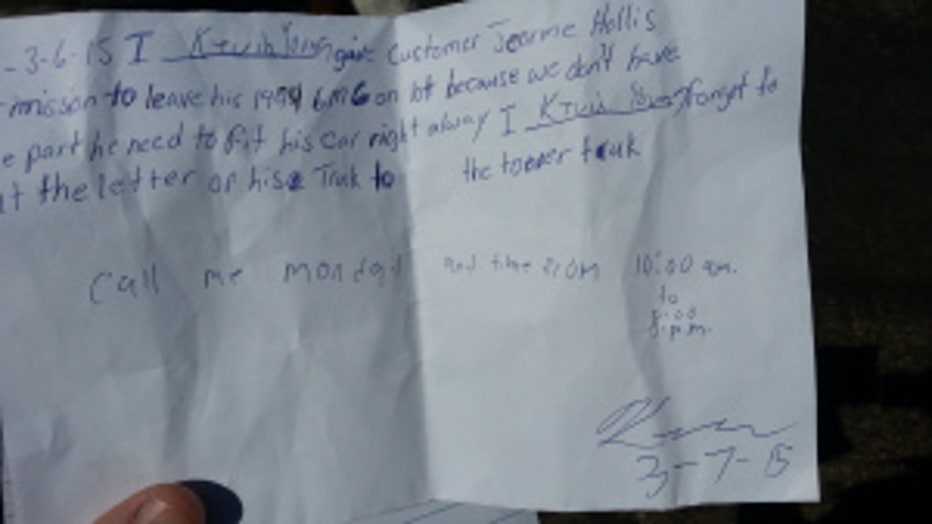 -3-6-15 I Kevin Young gave customer Jeanne Hollis
mission to leave his 1994 GMC on lot because we don't have
e part he need to fit his car right alway I Kevin Young forget to
t the letter on his Truk to the tower truk
call me monday and time from 10:00 am.
to
8:00
p.m.
3-7-15